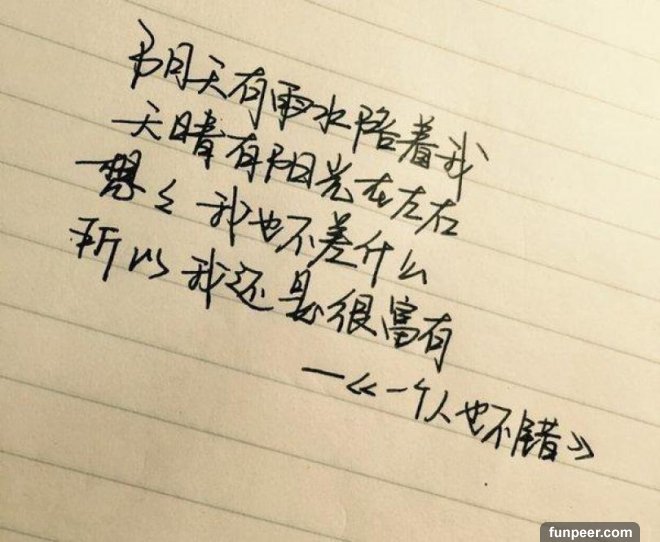 阴天有雨水陪着我
天晴有阳光在左右
想想我也不差什么
所以我还是很富有
—《一个人也不错》
funpeer.com